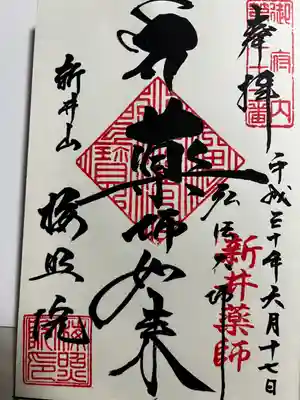 奉拝
平成三十年六月十七日
弘法大師
新井薬師
薬師如来
新井山
梅照院